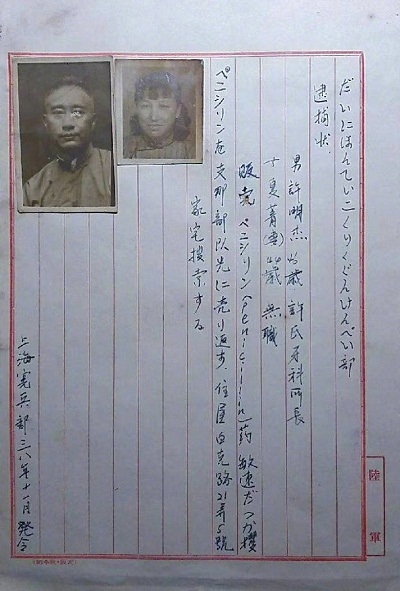 だいにほんていこくりくぐんけんぺい部
逮捕状.
男 許明杰 歳 許氏牙科所長
丁夏菁(妻) 歳 無職
販売 ペニシリン(Penicillin)药 敏速だつか攫
ペニシリンを支那部队先に売り返す.住屋白克路21弄5號
家宅捜索する
上海憲兵部三八年十一月発令
陸軍